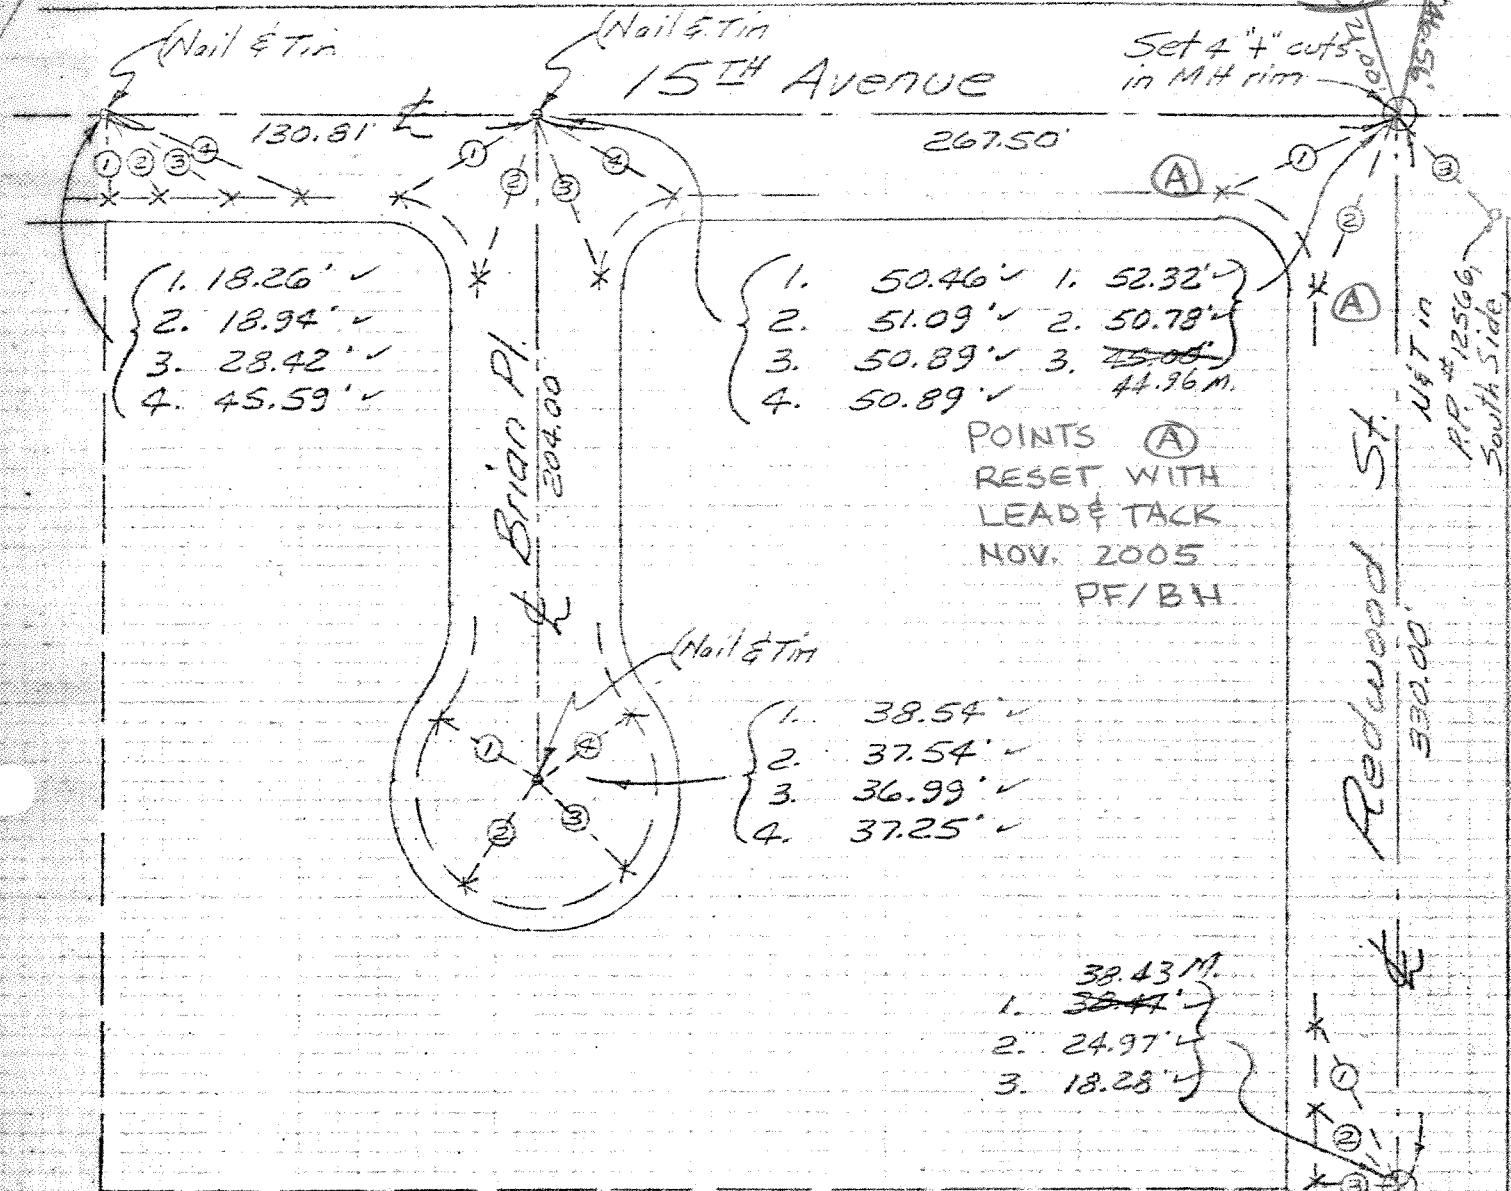 (Nail & Tin
(Nail & Tin
15TH Avenue
Set 4 "+" cuts
in MH rim
21.00'
95.56'
130.81'
℄
267.50'
1 2 3 4
1 2 3 4
A
1
2
3
1. 18.26' ✓
2. 18.94' ✓
3. 28.42' ✓
4. 45.59' ✓
1. 50.46' ✓
2. 51.09' ✓
3. 50.89' ✓
4. 50.89' ✓
1. 52.32' ✓
2. 50.78' ✓
3. 45.00'
44.96 M.
A
N&T in
P.P. #12566,
South Side,
℄ Brian Pl.
204.00'
POINTS A
RESET WITH
LEAD & TACK
NOV. 2005
PF/BH
℄ Redwood St.
330.00'
(Nail & Tin
1
4
2
3
1. 38.54' ✓
2. 37.54' ✓
3. 36.99' ✓
4. 37.25' ✓
38.43 M.
1. 38.41' ✓
2. 24.97' ✓
3. 18.28' ✓
1
2
3